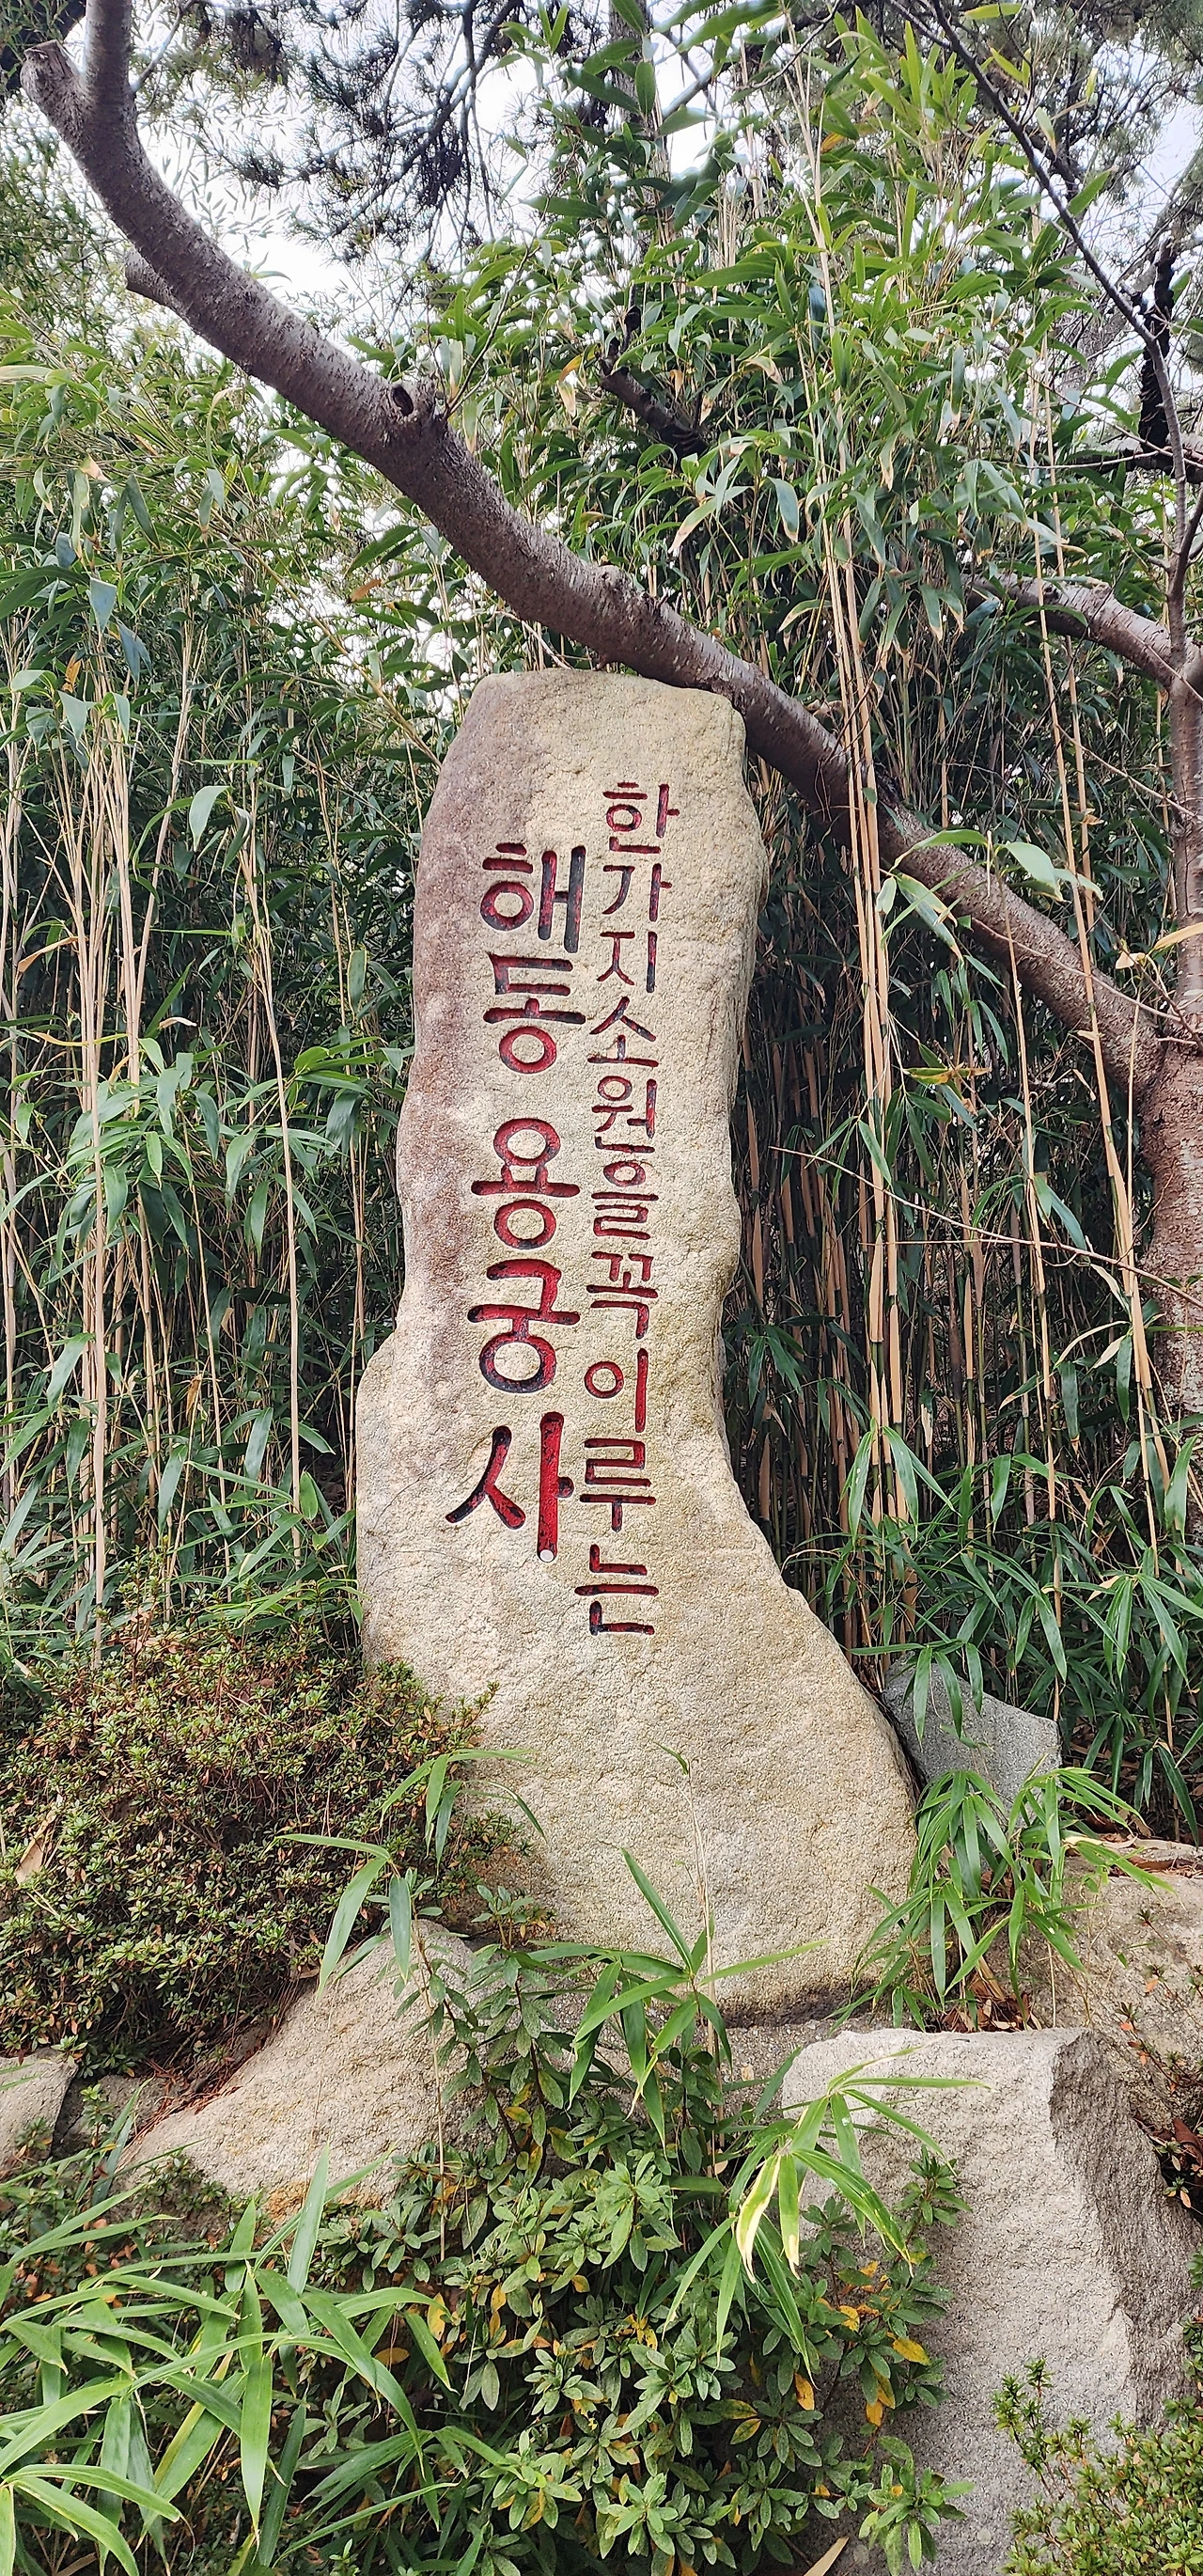 한가지소원을꼭이루는
해동용궁사